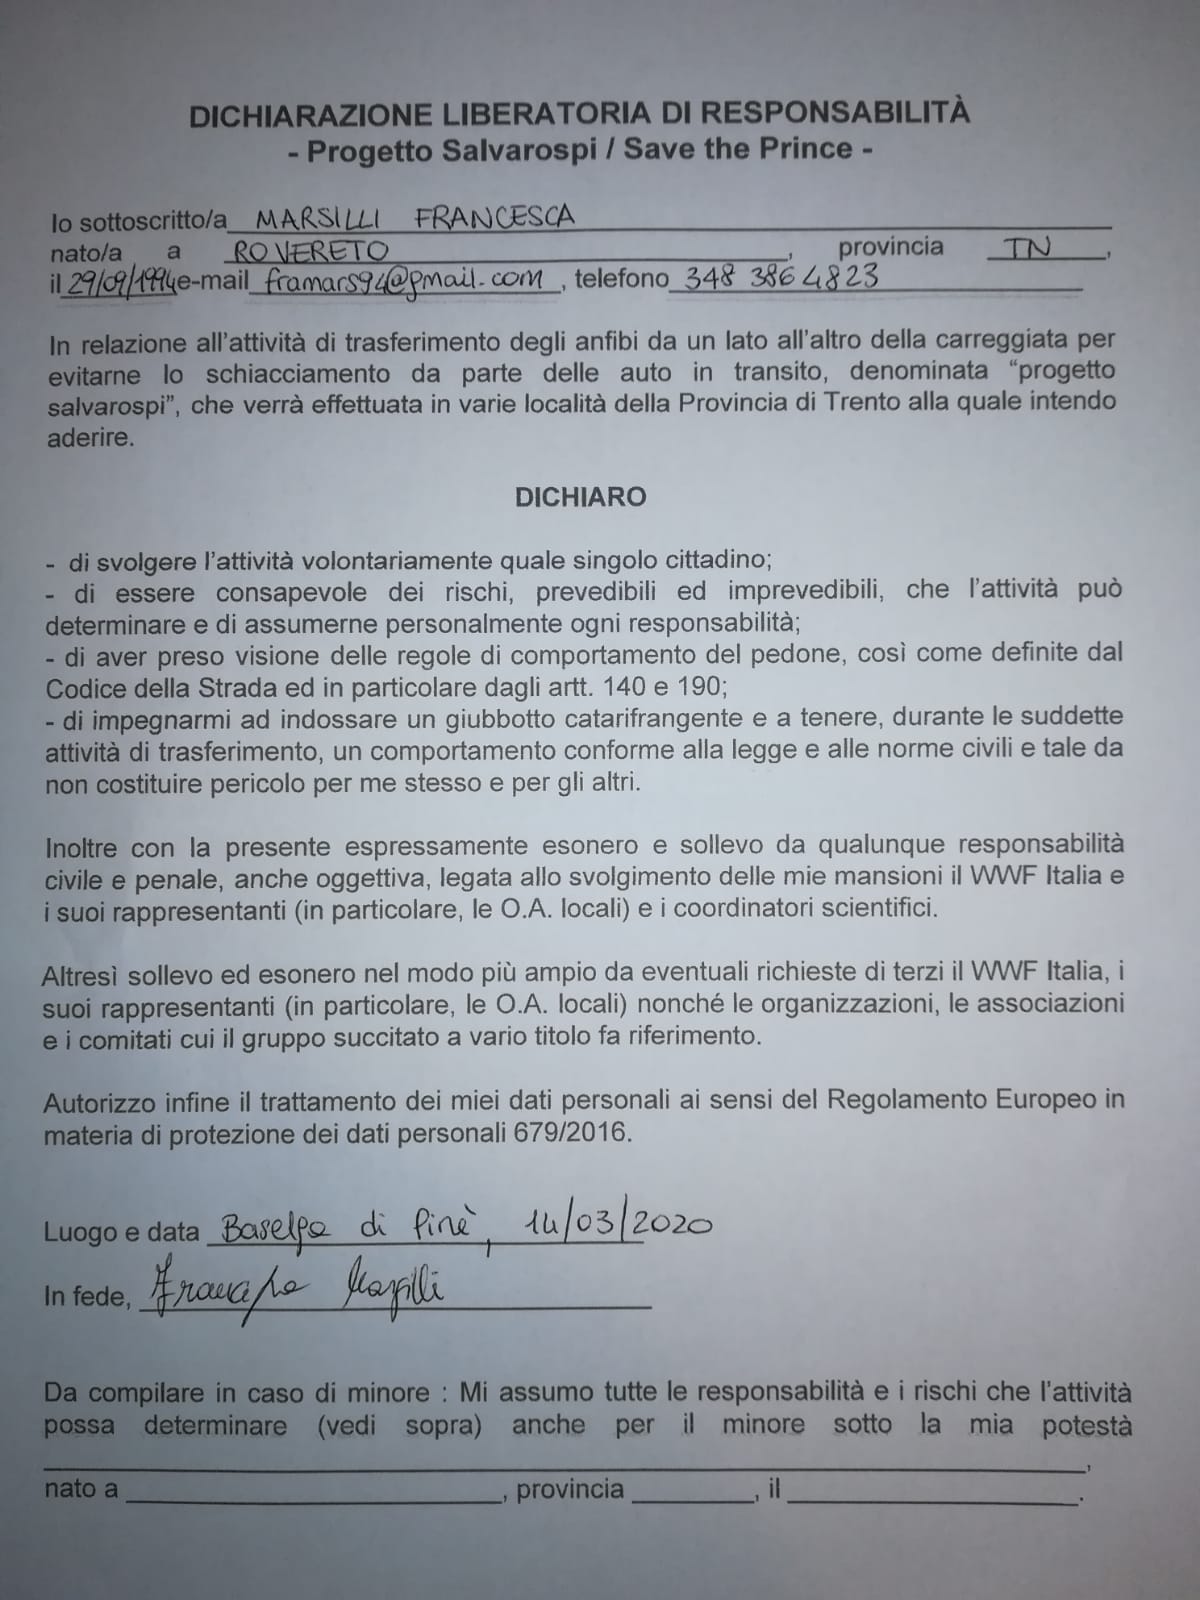 DICHIARAZIONE LIBERATORIA DI RESPONSABILITÀ
- Progetto Salvarospi / Save the Prince -
Io sottoscritto/a MARSILLI FRANCESCA
nato/a a ROVERETO, provincia TN,
il 29/09/1994 e-mail framars94@gmail.com, telefono 348 386 4823
In relazione all'attività di trasferimento degli anfibi da un lato all'altro della carreggiata per
evitarne lo schiacciamento da parte delle auto in transito, denominata “progetto
salvarospi”, che verrà effettuata in varie località della Provincia di Trento alla quale intendo
aderire.
DICHIARO
- di svolgere l'attività volontariamente quale singolo cittadino;
- di essere consapevole dei rischi, prevedibili ed imprevedibili, che l'attività può
determinare e di assumerne personalmente ogni responsabilità;
- di aver preso visione delle regole di comportamento del pedone, così come definite dal
Codice della Strada ed in particolare dagli artt. 140 e 190;
- di impegnarmi ad indossare un giubbotto catarifrangente e a tenere, durante le suddette
attività di trasferimento, un comportamento conforme alla legge e alle norme civili e tale da
non costituire pericolo per me stesso e per gli altri.
Inoltre con la presente espressamente esonero e sollevo da qualunque responsabilità
civile e penale, anche oggettiva, legata allo svolgimento delle mie mansioni il WWF Italia e
i suoi rappresentanti (in particolare, le O.A. locali) e i coordinatori scientifici.
Altresì sollevo ed esonero nel modo più ampio da eventuali richieste di terzi il WWF Italia, i
suoi rappresentanti (in particolare, le O.A. locali) nonché le organizzazioni, le associazioni
e i comitati cui il gruppo succitato a vario titolo fa riferimento.
Autorizzo infine il trattamento dei miei dati personali ai sensi del Regolamento Europeo in
materia di protezione dei dati personali 679/2016.
Luogo e data Baselga di Pinè, 14/03/2020
In fede, Francesca Marsilli
Da compilare in caso di minore : Mi assumo tutte le responsabilità e i rischi che l'attività
possa determinare (vedi sopra) anche per il minore sotto la mia potestà
,
nato a , provincia , il .